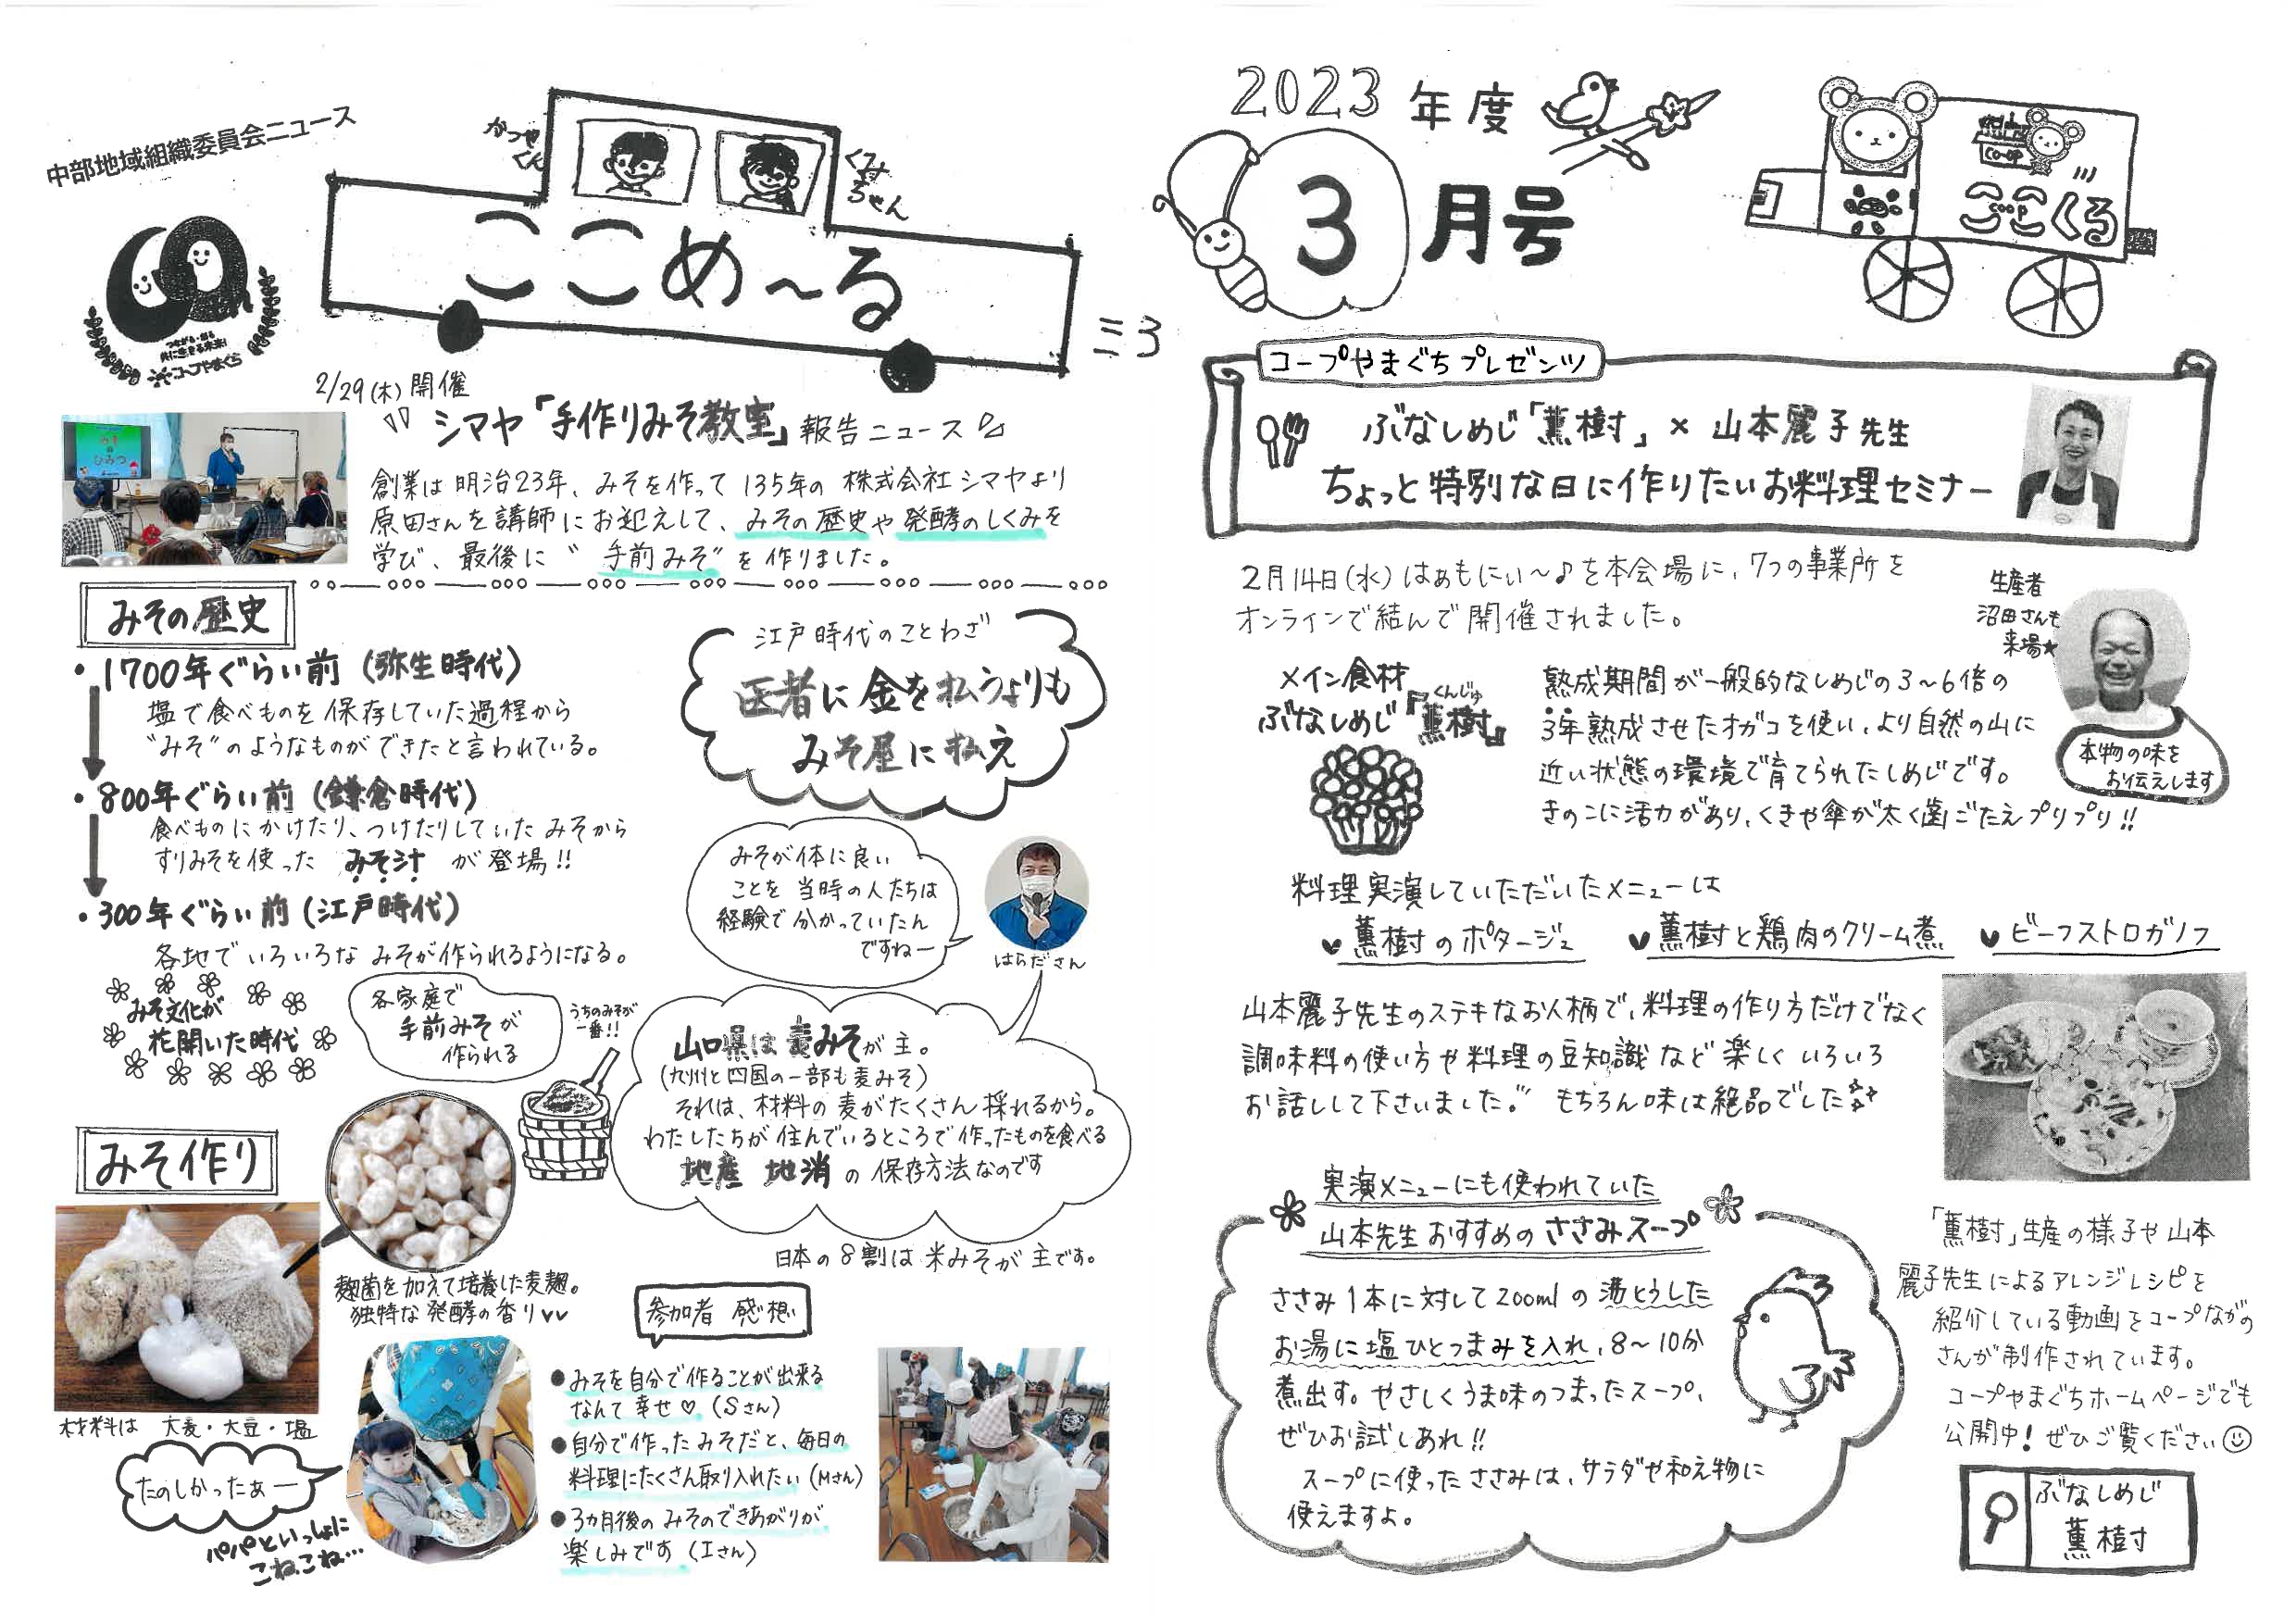 中部地域組織委員会ニュース
かつやくん
くみちゃん
ここめ～る
つながる・創る
共に生きる未来!
コープやまぐち
2023年度
3月号
CO-OP
ここくる
2/29(木)開催
シマヤ「手作りみそ教室」報告ニュース
みそ
の
ひみつ
創業は明治23年、みそを作って135年の株式会社シマヤより
原田さんを講師にお迎えして、みその歴史や発酵のしくみを
学び、最後に“手前みそ”を作りました。
みその歴史
・1700年ぐらい前(弥生時代)
塩で食べものを保存していた過程から
“みそ”のようなものができたと言われている。
・800年ぐらい前(鎌倉時代)
食べものにかけたり、つけたりしていたみそから
すりみそを使った みそ汁 が登場!!
・300年ぐらい前(江戸時代)
各地でいろいろなみそが作られるようになる。
みそ文化が
花開いた時代
各家庭で
手前みそが
作られる
うちのみそが
一番!!
江戸時代のことわざ
医者に金を払うよりも
みそ屋に払え
みそが体に良い
ことを当時の人たちは
経験で分かっていたん
ですねー
はらださん
山口県は麦みそが主。
(九州と四国の一部も麦みそ)
それは、材料の麦がたくさん採れるから。
わたしたちが住んでいるところで作ったものを食べる
地産地消の保存方法なのです
日本の8割は米みそが主です。
みそ作り
麹菌を加えて培養した麦麹。
独特な発酵の香り♥♥
材料は 大麦・大豆・塩
たのしかったぁー
パパといっしょに
こねこね…
参加者 感想
●みそを自分で作ることが出来る
なんて幸せ♡(Sさん)
●自分で作ったみそだと、毎日の
料理にたくさん取り入れたい(Mさん)
●3ヵ月後のみそのできあがりが
楽しみです(Iさん)
コープやまぐちプレゼンツ
ぶなしめじ「薫樹」×山本麗子先生
ちょっと特別な日に作りたいお料理セミナー
2月14日(水)はぁもにぃ～♪を本会場に、7つの事業所を
オンラインで結んで開催されました。
生産者
沼田さんも
来場★
本物の味を
お伝えします
メイン食材
ぶなしめじ『薫樹』
くんじゅ
熟成期間が一般的なしめじの3～6倍の
3年熟成させたオガコを使い、より自然の山に
近い状態の環境で育てられたしめじです。
きのこに活力があり、くきや傘が太く歯ごたえプリプリ!!
料理実演していただいたメニューは
♥薫樹のポタージュ ♥薫樹と鶏肉のクリーム煮 ♥ビーフストロガノフ
山本麗子先生のステキなお人柄で、料理の作り方だけでなく
調味料の使い方や料理の豆知識など楽しくいろいろ
お話しして下さいました。” もちろん味は絶品でした
実演メニューにも使われていた
山本先生おすすめのささみスープ
ささみ1本に対して200mlの沸とうした
お湯に塩ひとつまみを入れ、8～10分
煮出す。やさしくうま味のつまったスープ、
ぜひお試しあれ!!
スープに使ったささみは、サラダや和え物に
使えますよ。
「薫樹」生産の様子や山本
麗子先生によるアレンジレシピを
紹介している動画をコープながの
さんが制作されています。
コープやまぐちホームページでも
公開中!ぜひご覧ください
ぶなしめじ
薫樹